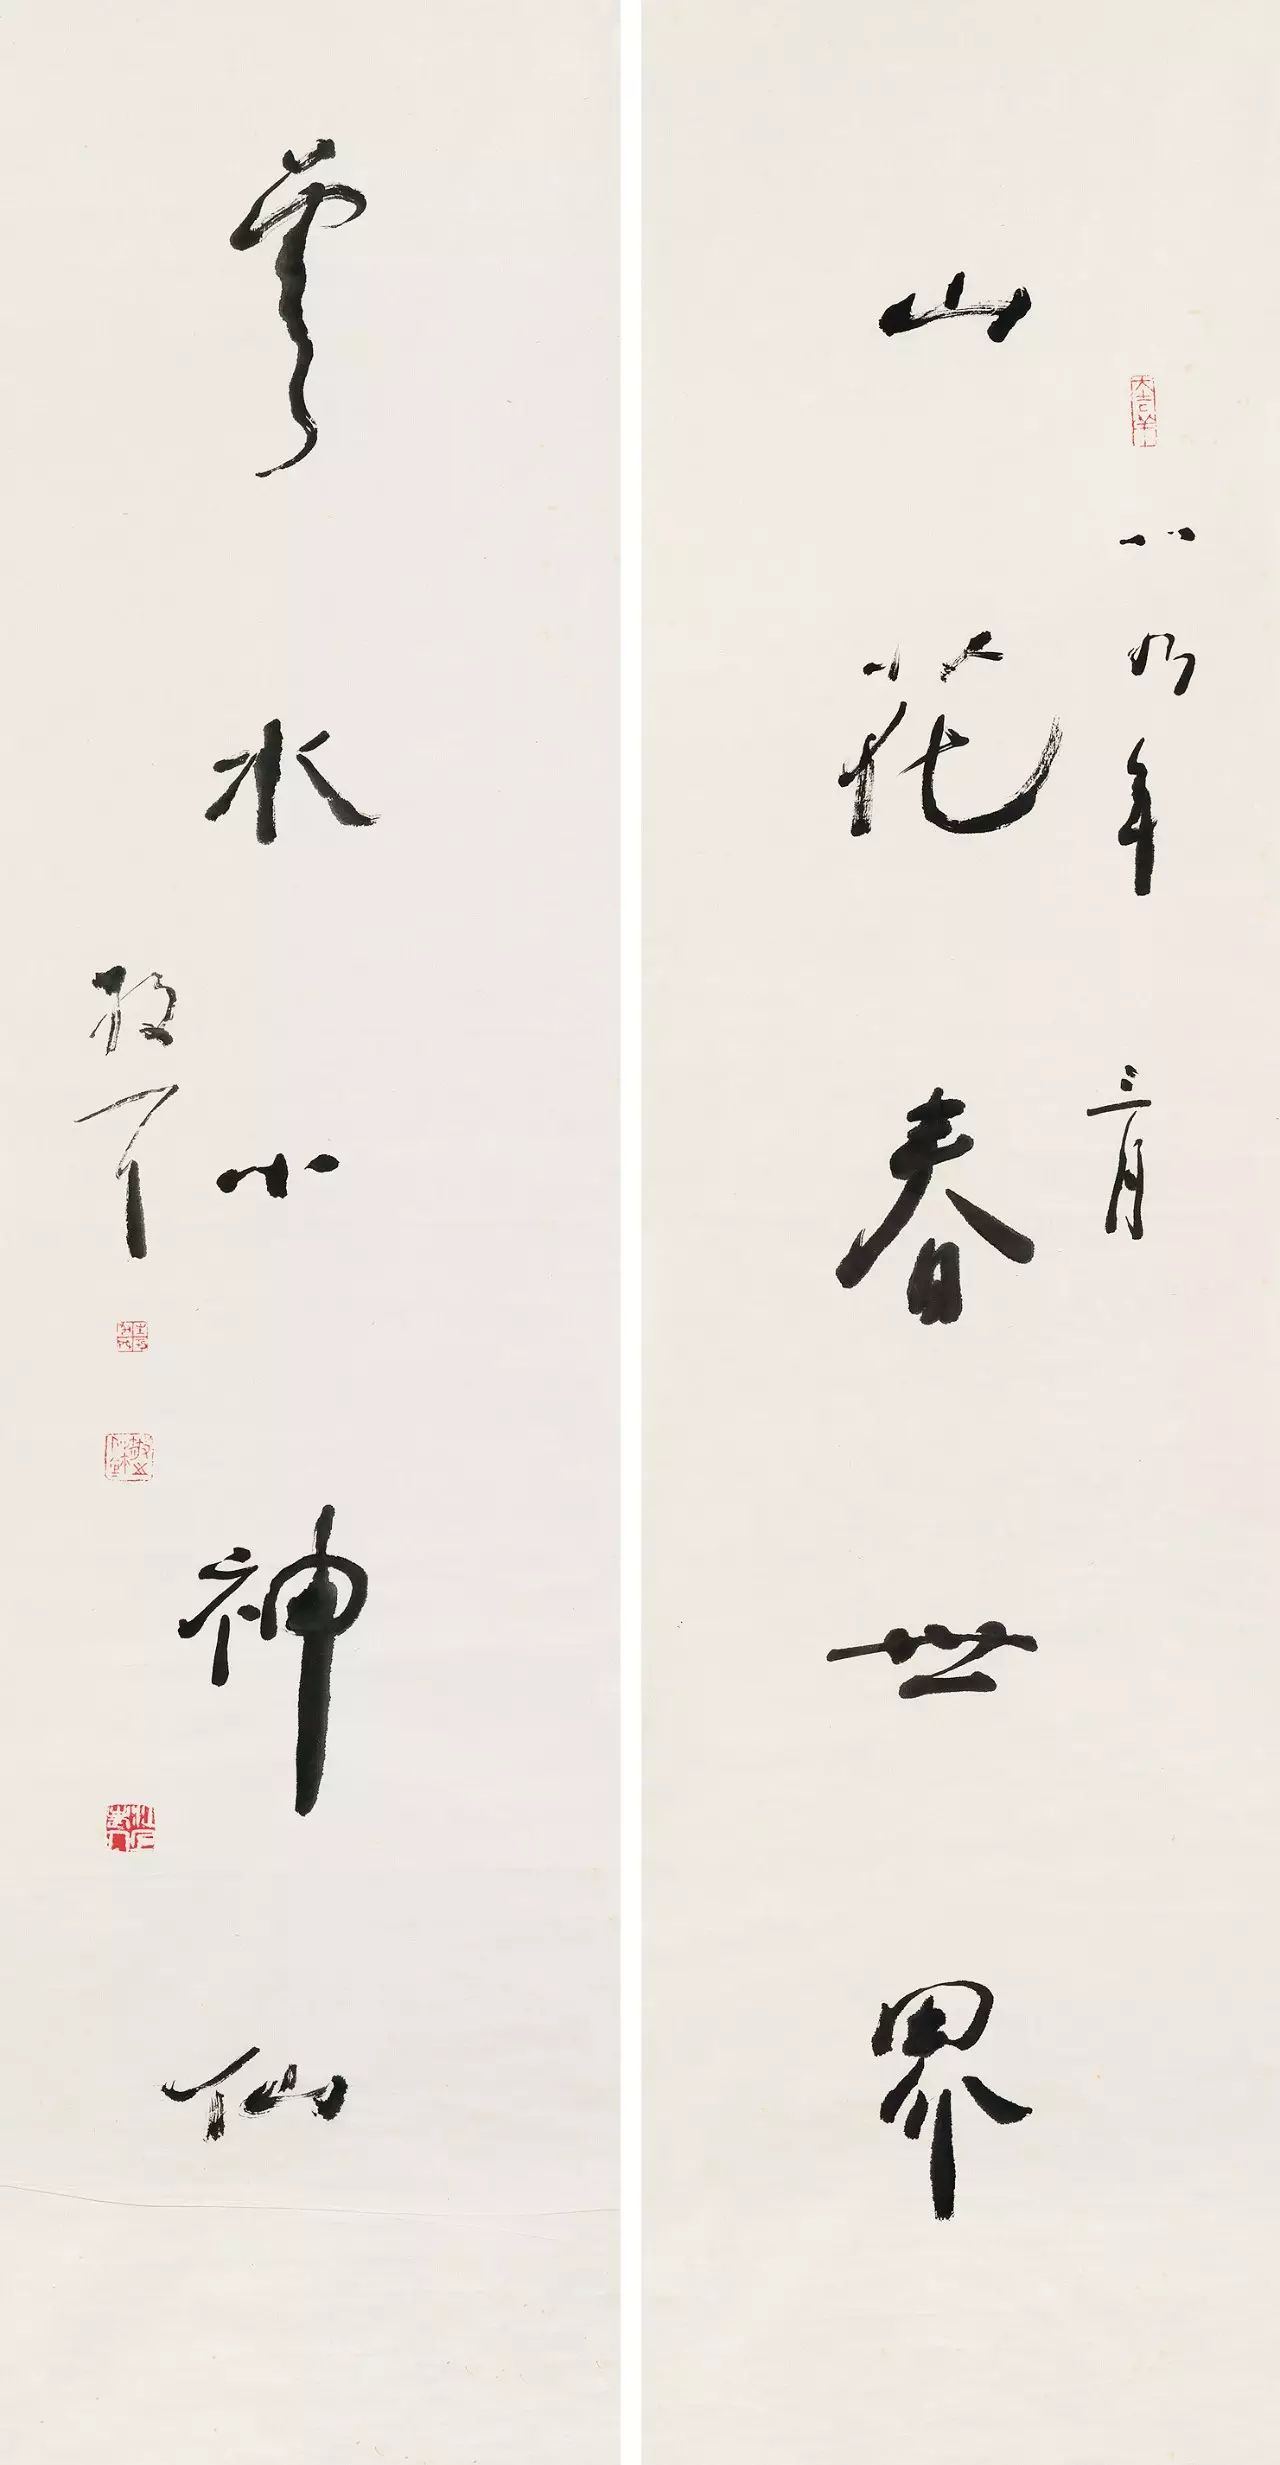 山花春世界
八九年三月
雲水小神仙